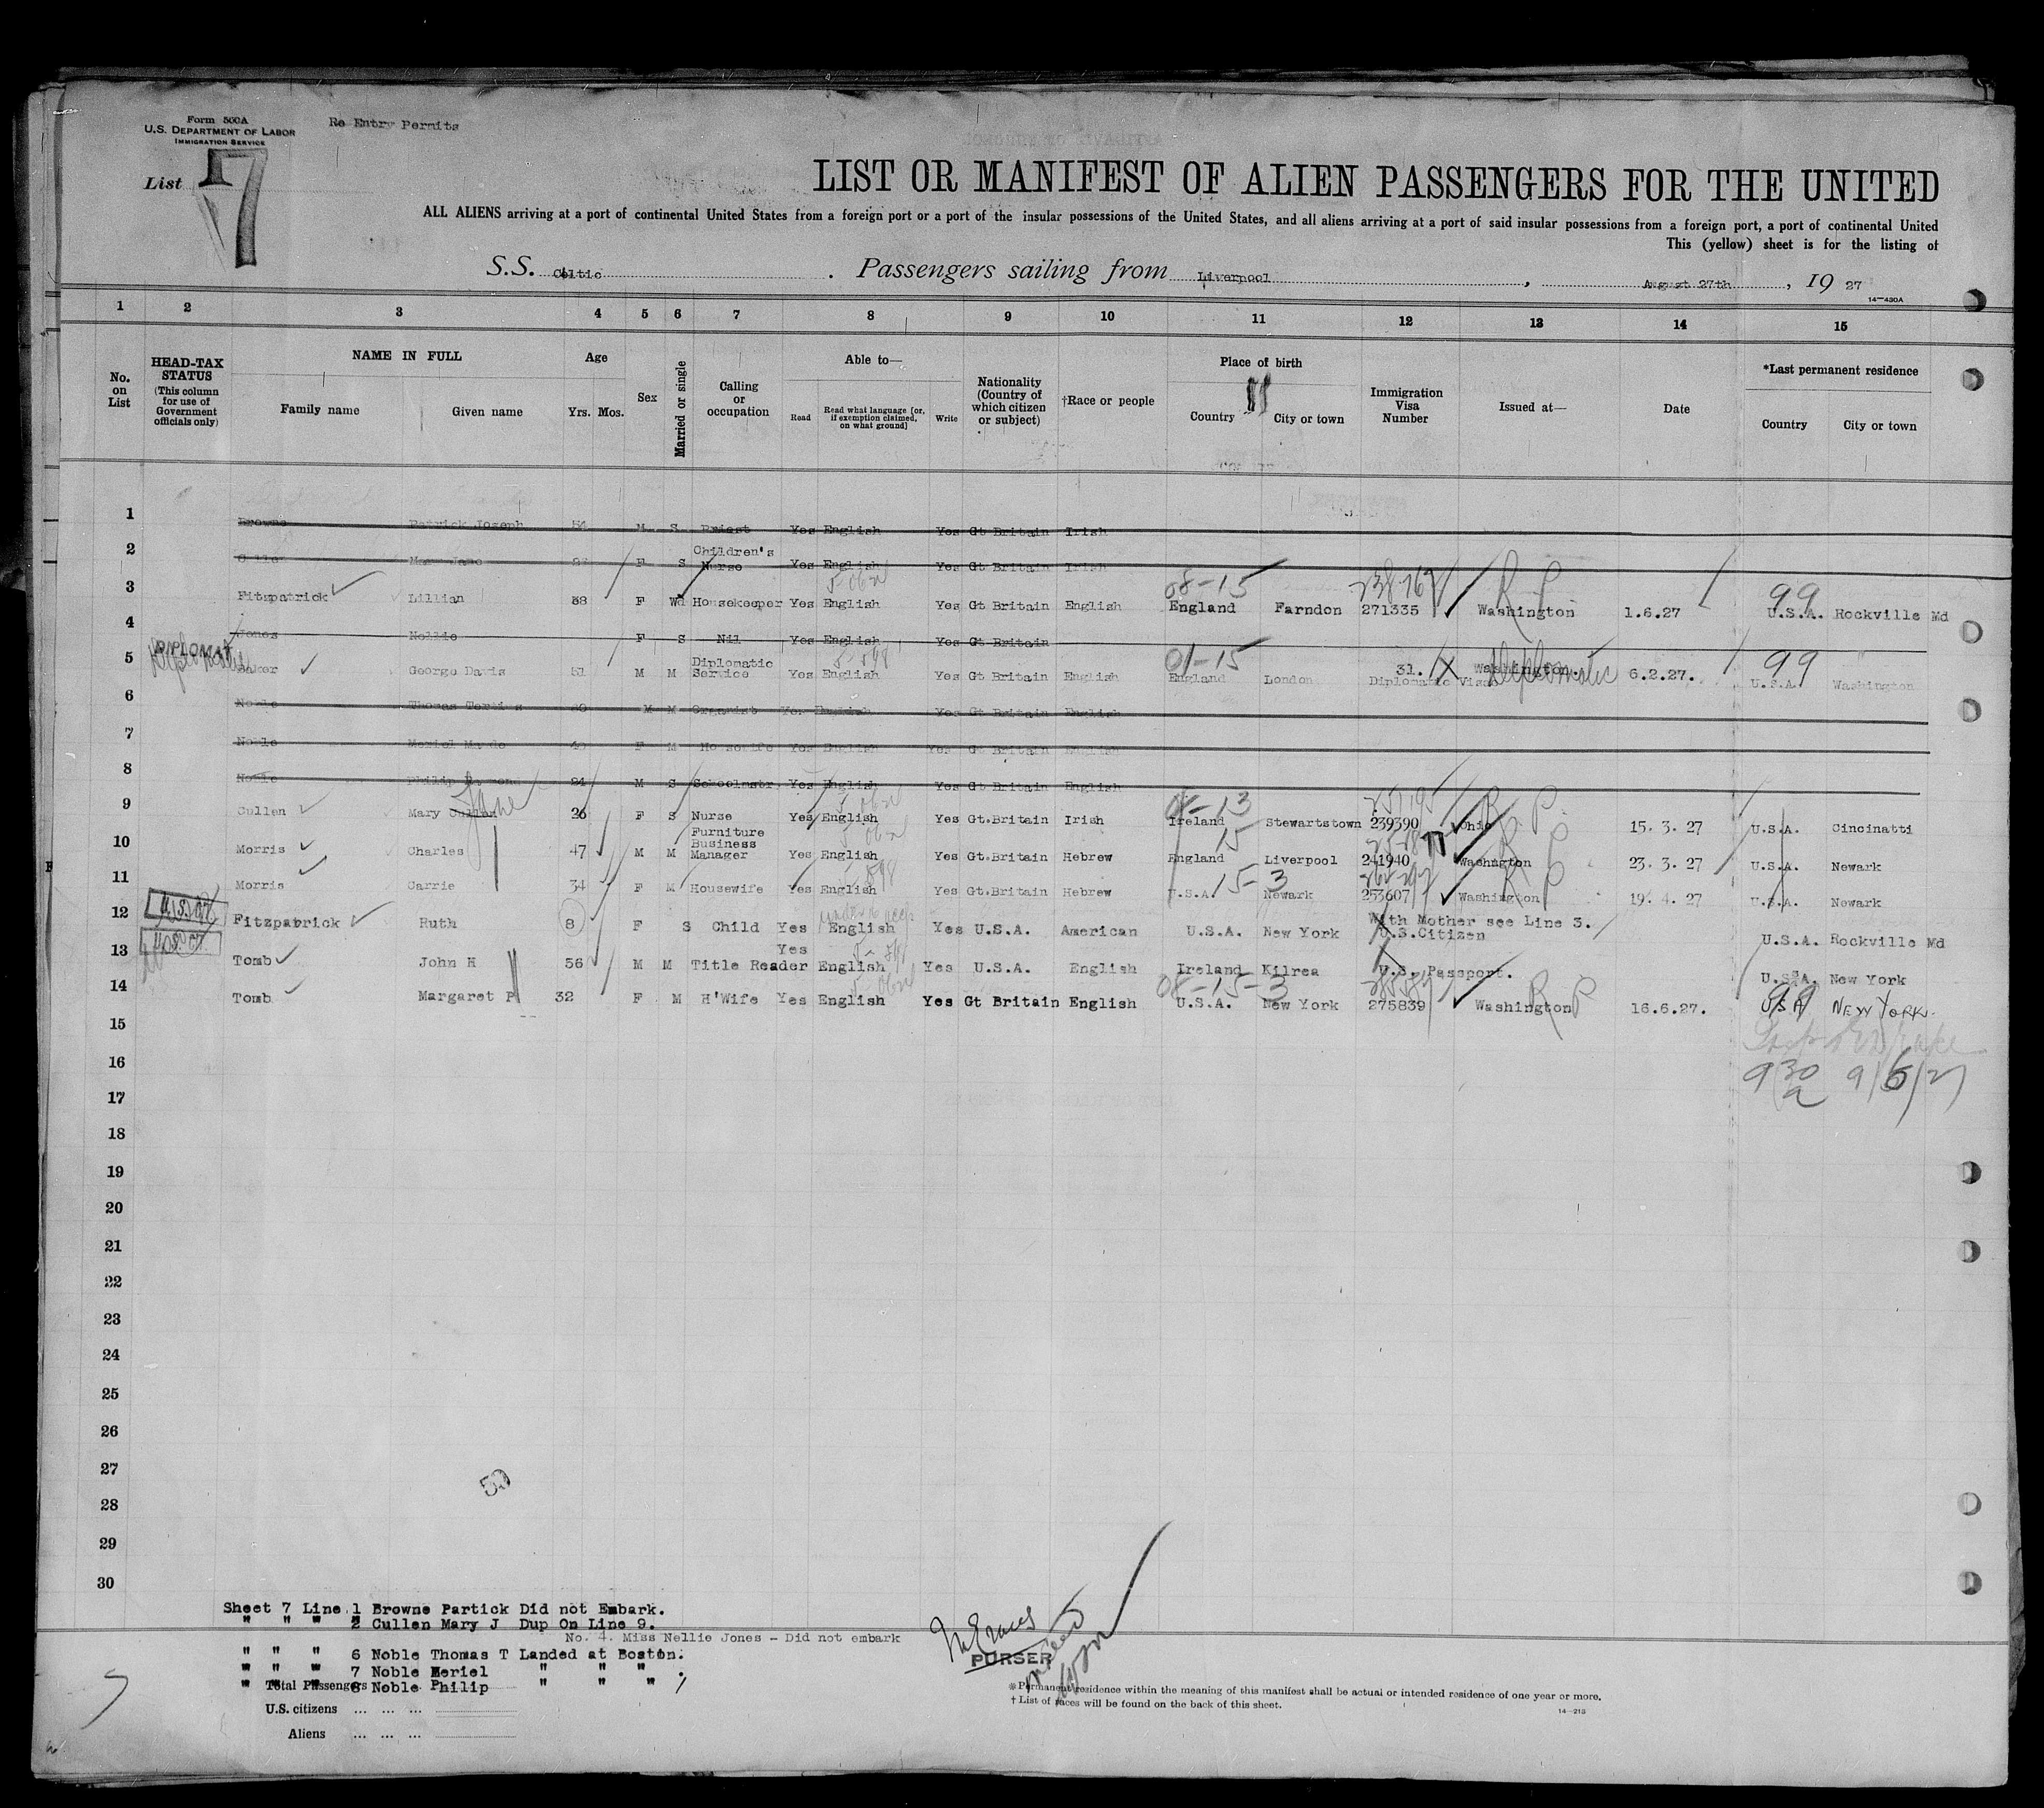 Form 500A
U.S. DEPARTMENT OF LABOR
IMMIGRATION SERVICE
Re Entry Permits
List 7
LIST OR MANIFEST OF ALIEN PASSENGERS FOR THE UNITED
ALL ALIENS arriving at a port of continental United States from a foreign port or a port of the insular possessions of the United States, and all aliens arriving at a port of said insular possessions from a foreign port, a port of continental United
This (yellow) sheet is for the listing of
S.S. Celtic . Passengers sailing from Liverpool , August 27th , 19 27
14—430A
1 2 3 4 5 6 7 8 9 10 11 12 13 14 15
No. on List
HEAD-TAX STATUS (This column for use of Government officials only)
NAME IN FULL
Family name Given name
Age Yrs. Mos.
Sex
Married or single
Calling or occupation
Able to—
Read Read what language [or, if exemption claimed, on what ground] Write
Nationality (Country of which citizen or subject)
†Race or people
Place of birth
Country City or town
Immigration Visa Number
Issued at—
Date
*Last permanent residence
Country City or town
1 Browne Patrick Joseph 54 M S Priest Yes English Yes Gt Britain Irish
2 Mary Jane F S Children's Nurse Yes English Yes Gt Britain Irish
3 Fitzpatrick Lillian 38 F Wd Housekeeper Yes English Yes Gt Britain English 08-15 England Farndon 271335 Washington R P 1.6.27 99 U.S.A. Rockville Md
4 Jones Nellie F S Nil Yes English Yes Gt Britain
5 DIPLOMAT Baker George Davis 51 M M Diplomatic Service Yes English Yes Gt Britain English 01-15 England London 31. Diplomatic Visa Washington. Diplomatic 6.2.27. 99 U.S.A. Washington
6 Noble Thomas Tertius 60 M M Organist Yes English Yes Gt Britain English
7 Noble Meriel Maude F M Housewife Yes English Yes Gt Britain English
8 Noble Philip 24 M S Schoolmstr. Yes English Yes Gt Britain English
9 Cullen Mary Cullen Jane 26 F S Nurse Yes English Yes Gt.Britain Irish 08-13 Ireland Stewartstown 239390 Ohio R P 15. 3. 27 U.S.A. Cincinatti
10 Morris Charles 47 M M Furniture Business Manager Yes English Yes Gt.Britain Hebrew 15 England Liverpool 241940 Washngton R P 23. 3. 27 U.S.A. Newark
11 Morris Carrie 34 F M Housewife Yes English Yes Gt.Britain Hebrew 15-3 U.S.A. Newark 253607 Washington R P 19. 4. 27 U.S.A. Newark
12 Fitzpatrick Ruth 8 F S Child Yes English Yes U.S.A. American U.S.A. New York With Mother see Line 3. U.S.Citizen U.S.A. Rockville Md
13 Tomb John H 56 M M Title Reader Yes English Yes U.S.A. English Ireland Kilrea U.S. Passport. U.S.A. New York
14 Tomb Margaret P 32 F M H'Wife Yes English Yes Gt Britain English 08-15-3 U.S.A. New York 275839 Washington R P 16.6.27. 99 USA NEW YORK.
15
16 9 30 a 9/6/27
17
18
19
20
21
22
23
24
25
26
27
50
28
29
30
Sheet 7 Line 1 Browne Partick Did not Embark.
" " " 2 Cullen Mary J Dup On Line 9.
No. 4. Miss Nellie Jones - Did not embark
" " " 6 Noble Thomas T Landed at Boston.
" " " 7 Noble Meriel " " " .
" " " 8 Noble Philip " " "
Total Passengers
PURSER
U.S. citizens ... ... ...
Aliens ... ... ...
*Permanent residence within the meaning of this manifest shall be actual or intended residence of one year or more.
†List of races will be found on the back of this sheet.
14—213